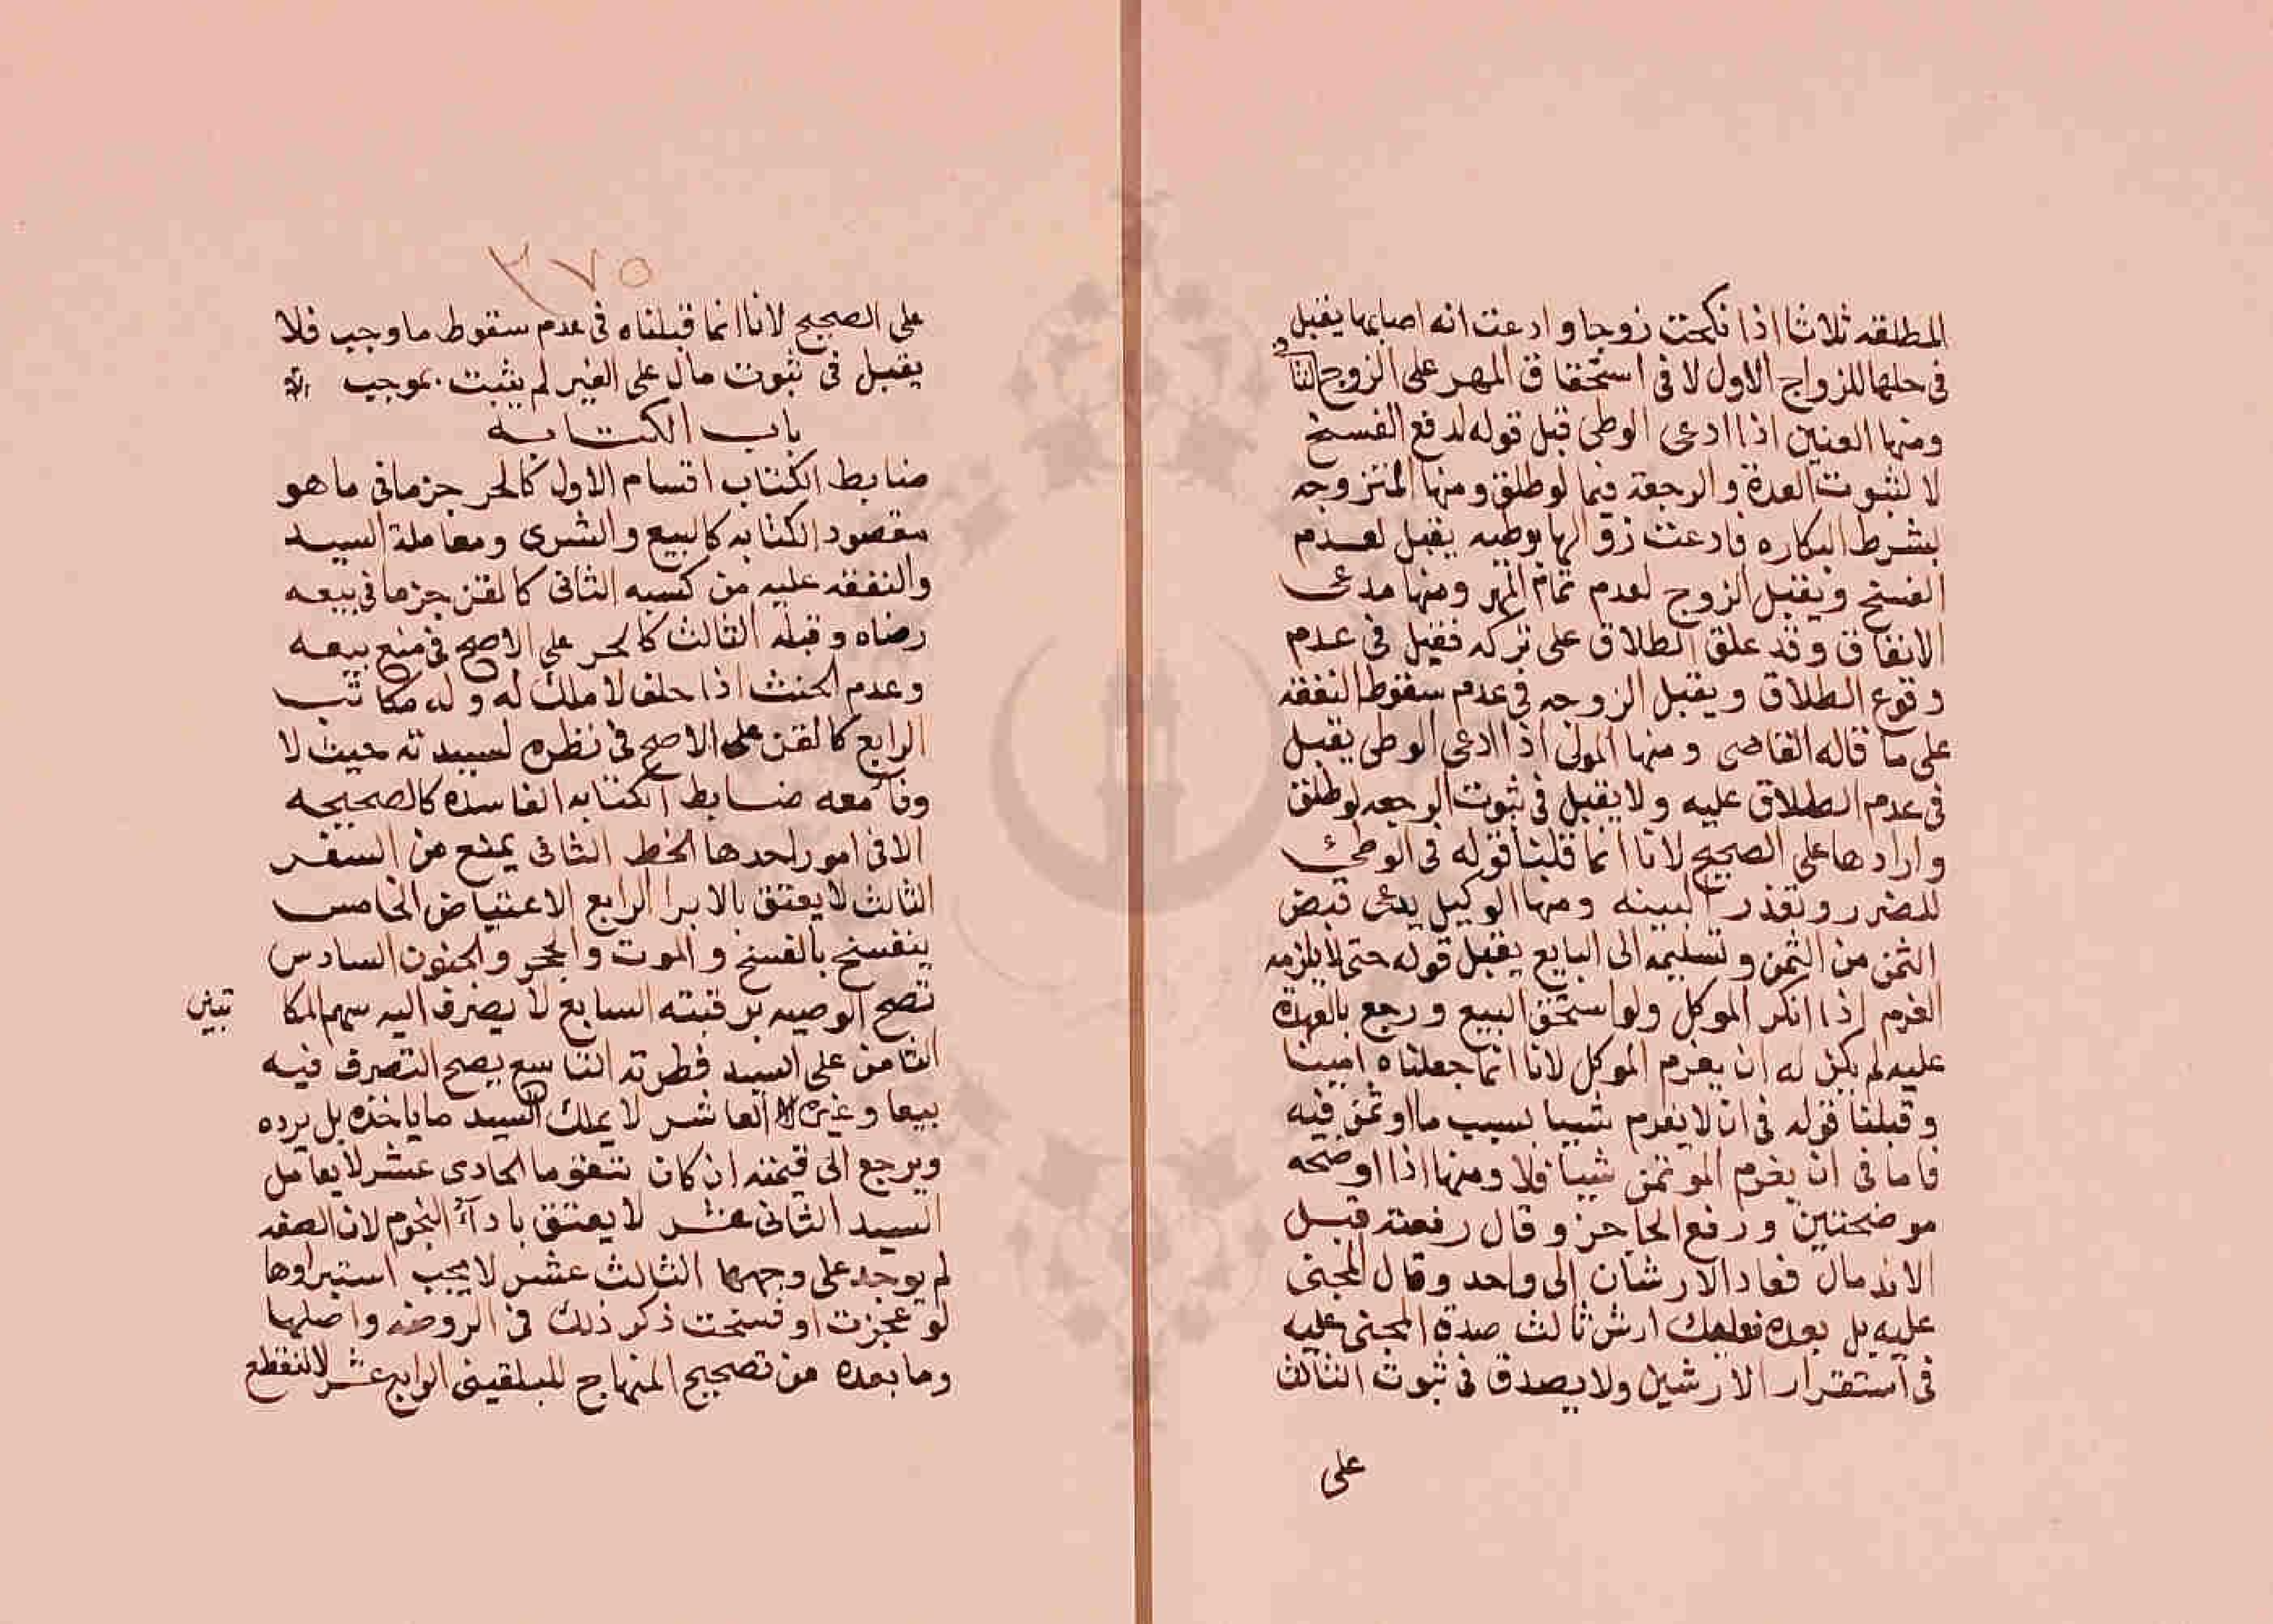 المطلقه ثلاثا اذا نكحت زوجا وادعت انه اصابها يقبل
في حلها للزواج الاول لا في استحقاق المهر على الزوج الثاني
ومنها العنين اذا ادعى الوطى قبل قوله لدفع الفسخ
لا لثبوت العدة والرجعة فيما لو طلق ومنها المتزوجه
بشرط البكاره فادعت زوالها بوطيه يقبل لعدم
الفسخ ويقبل الزوج لعدم تمام المهر ومنها مدعى
الانفاق وقد علق الطلاق على تركه فقيل في عدم
وقوع الطلاق ويقبل الزوجه في عدم سقوط النفقه
على ما قاله القاضى ومنها المولى اذا ادعى الوطى يقبل
في عدم الطلاق عليه ولا يقبل في ثبوت الرجعه لو طلق
وارادها على الصحيح لانا انما قلبنا قوله في الوطئ
للضرر وتعذر البينه ومنها الوكيل يدعى قبض
الثمن من الثمن وتسليمه الى البايع يقبل قوله حتى لا يلزمه
الغرم اذا انكر الموكل ولو استحق البيع ورجع بالعهدة
عليه لم يكن له ان يغرم الموكل لانا انما جعلناه امينا
وقبلنا قوله في ان لا يغرم شييا بسبب ما اوتمن فيه
فاما في ان يغرم الموتمن شييا فلا ومنها اذا اوضحه
موضحتين ورفع الحاجز وقال رفعته قبل
الاندمال فعاد الارشان الى واحد وقال المجنى
عليه بل بعده فعليك ارش ثالث صدق المجنى عليه
في استقرار الارشين ولا يصدق في ثبوت الثالث
على
٣٧٥
على الصحيح لانا انما قبلناه في عدم سقوط ما وجب فلا
يقبل في ثبوت مال على الغير لم يثبت بموجب
باب الكتابه
ضابط الكتاب اقسام الاول كالحر جزما في ما هو
مقصود الكتابه كالبيع والشرى ومعاملة السيد
والنفقه عليه من كسبه الثانى كالقن جزما في بيعه
رضاه وقبله الثالث كالحر على الاصح في منع بيعه
وعدم الحنث اذا حلف لا ملك له وله مكاتب
الرابع كالقن على الاصح في نظره لسيدته حيث لا
وفا معه ضابط الكتابه الفاسدة كالصحيحه
الا في امور احدها الخط الثانى يمنع من السفر
الثالث لا يعتق بالابرا الرابع الاعتياض الخامس
ينفسخ بالفسخ والموت والحجر والجنون السادس
تصح الوصيه برقبته السابع لا يصرف اليه سهم المكا تبين
الثامن على السيد فطرته التاسع يصح التصرف فيه
بيعا وغيره العاشر لا يملك السيد ما ياخذه بل يرده
ويرجع الى قيمته ان كان متقوما الحادى عشر لا يعامل
السيد الثانى عشر لا يعتق بادآء النجوم لان الصفه
لم يوجد على وجهها الثالث عشر لا يجب استبراوها
لو عجزت او فسخت ذكر ذلك في الروضه واصلها
وما بعده من تصحيح المنهاج للبلقينى الرابع عشر لا تنقطع